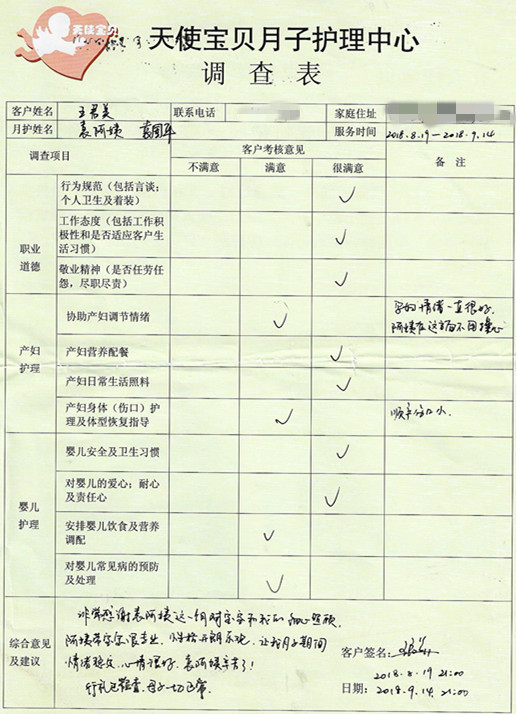 天使宝贝
天使宝贝月子护理中心
调查表
客户姓名 王君美 联系电话 家庭住址
月护姓名 袁阿姨 袁国平 服务时间 2018.8.19—2018.9.14
调查项目 客户考核意见 备注
不满意 满意 很满意
职业道德
行为规范（包括言谈；
个人卫生及着装） ✓
工作态度（包括工作积
极性和是否适应客户生
活习惯） ✓
敬业精神（是否任劳任
怨，尽职尽责） ✓
产妇护理
协助产妇调节情绪 ✓ 孕妇情绪一直很好，
阿姨在这方面不用操心
产妇营养配餐 ✓
产妇日常生活照料 ✓
产妇身体（伤口）护
理及体型恢复指导 ✓ 顺产伤口小.
婴儿护理
婴儿安全及卫生习惯 ✓
对婴儿的爱心；耐心
及责任心 ✓
安排婴儿饮食及营养
调配 ✓
对婴儿常见病的预防
及处理 ✓
综合意见
及建议
非常感谢袁阿姨这一月对宝宝和我的细心照顾,
阿姨带宝宝很专业,性格开朗乐观,让我月子期间
情绪稳定,心情很好,袁阿姨辛苦了!
行礼已检查,母子一切正常.
客户签名:
2018.8.19 21:00
日期: 2018.9.14. 21:00